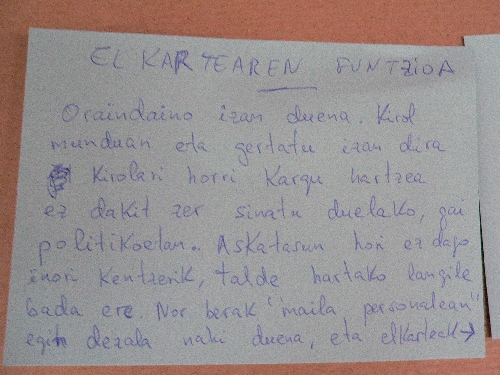 ELKARTEAREN FUNTZIOA
Oraindaino izan duena. Kirol
munduan eta gertatu izan dira
Kirolari horri Kargu hartzea
ez dakit zer sinatu duelako, gai
politikoetan. Askatasun hori ez dago
inori Kentzerik, talde hartako langile
bada ere. Nor berak "maila personalean"
egin dezala nahi duena, eta elkarteak →